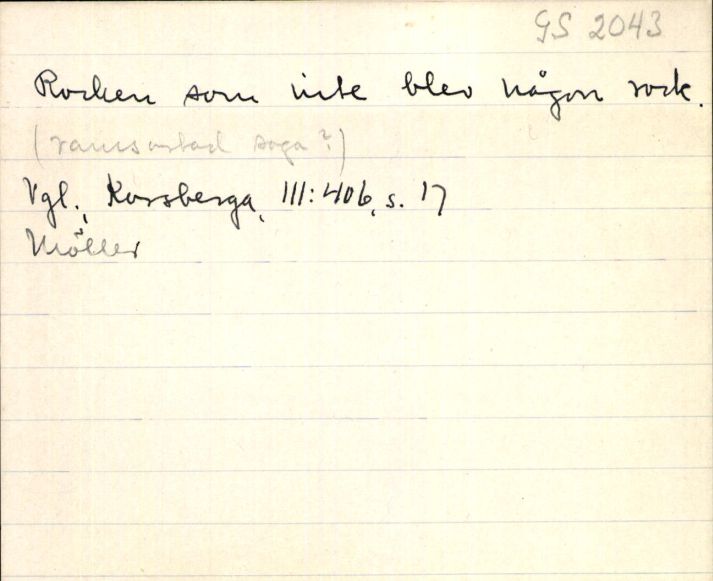 GS 2043
Rocken som inte blev någon rock.
(ramsartad saga?)
Vgl., Korsberga, III:406, s. 17
Möller